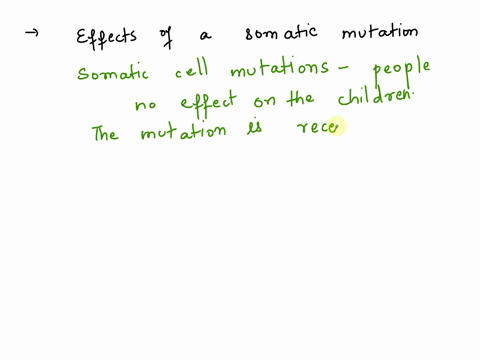 → Effects of a somatic mutation
Somatic cell mutations – people
no effect on the children.
The mutation is rece